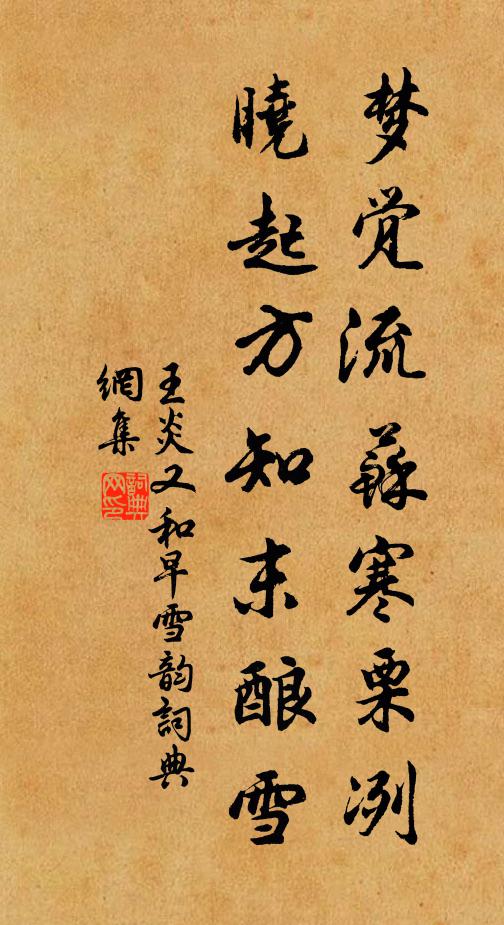 梦觉流蘇寒栗冽
曉起方知末酿雪
王炎又和早雪韵詞典
網集
詞典网印